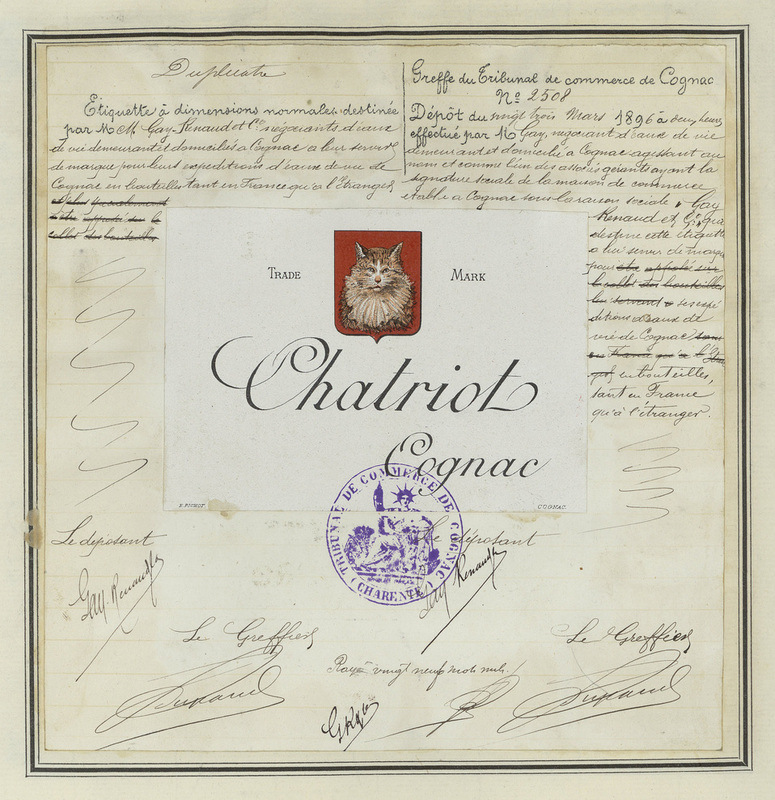 Duplicata
Etiquette à dimensions normales destinée
par MM. Gay-Renaud et Cie négociants d'eaux
de vie demeurant et domiciliés à Cognac à leur servir
de marque pour leurs expéditions d'eaux de vie de
Cognac en bouteilles tant en France qu'à l'Etranger
Greffe du Tribunal de commerce de Cognac
No 2508
Dépôt du vingt trois Mars 1896 à deux heures
effectué par M Gay, négociant d'eaux de vie
demeurant et domicilié à Cognac agissant au
nom et comme l'un des associés gérants ayant la
signature sociale de la maison de commerce
établie à Cognac sous la raison sociale Gay
Renaud et Cie qui
destine cette étiquette
à lui servir de marque
pour être apposée sur
le collet des bouteilles
lui servant à ses expé
ditions d'eaux de
vie de Cognac
en bouteilles,
tant en France
qu'à l'étranger.
TRADE MARK
Chatriot
Cognac
COGNAC
TRIBUNAL DE COMMERCE DE COGNAC
(CHARENTE)
Le déposant
Le déposant
Gay-Renaud
Gay Renaud
Le Greffier
Le Greffier
Rayé vingt neuf mots nuls